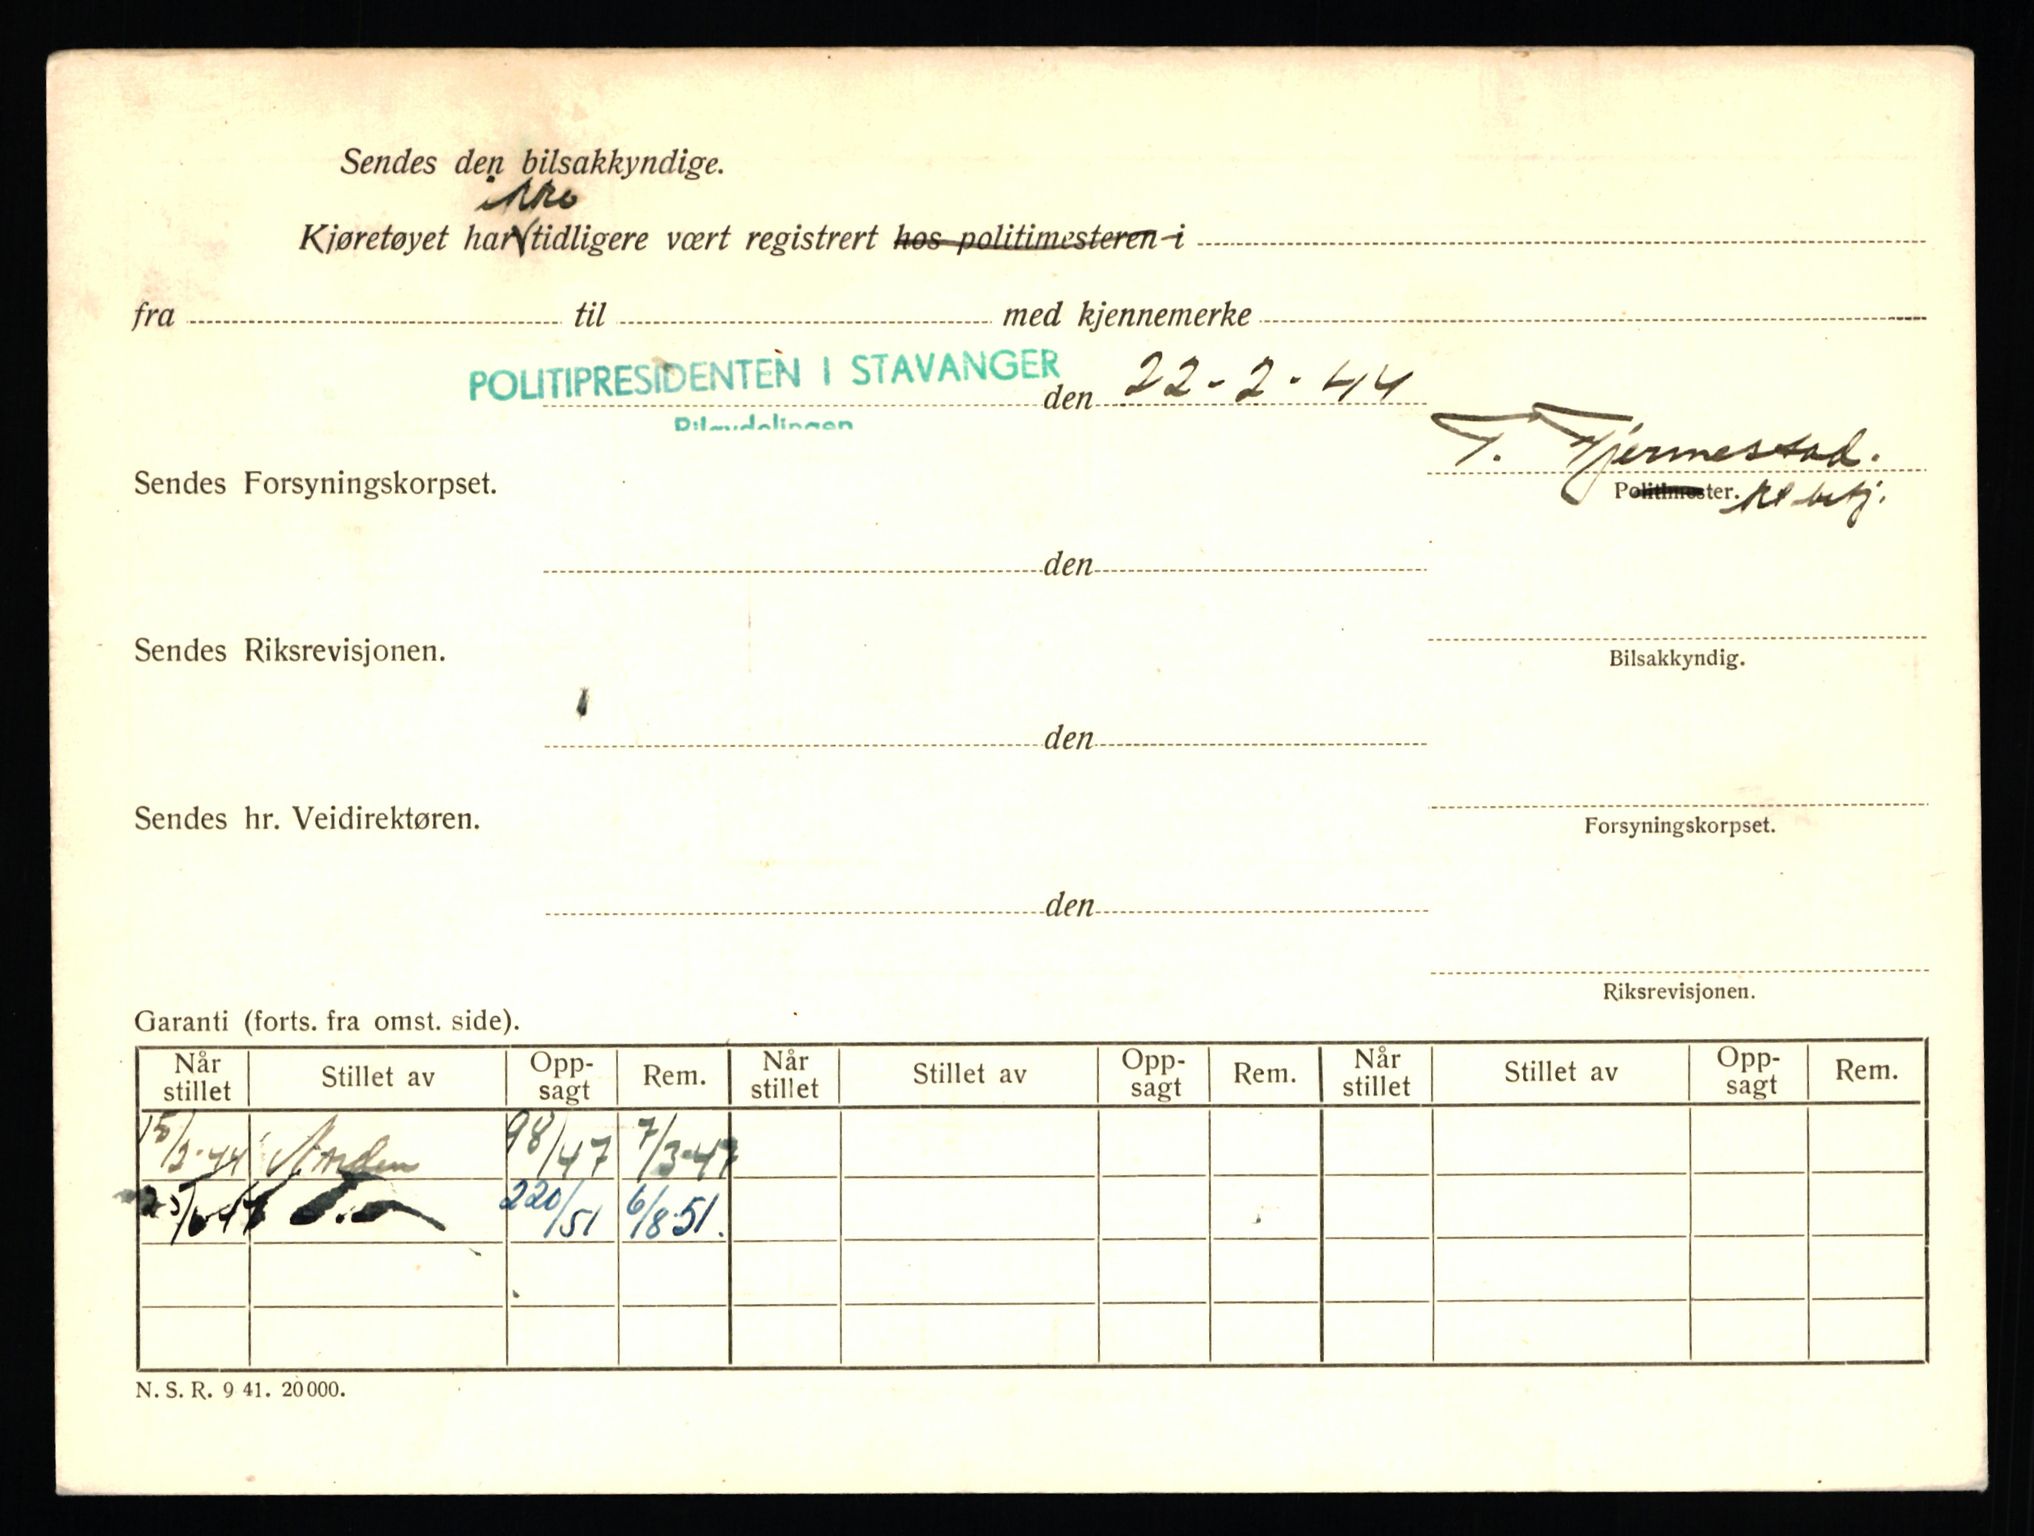 Sendes den bilsakkyndige.
ikke
Kjøretøyet har tidligere vært registrert hos politimesteren i
fra til med kjennemerke
POLITIPRESIDENTEN I STAVANGER
den 22-2-44
Bilavdelingen
T. Tjermestad.
Sendes Forsyningskorpset.
Politimester.
den
Sendes Riksrevisjonen.
Bilsakkyndig.
den
Sendes hr. Veidirektøren.
Forsyningskorpset.
den
Riksrevisjonen.
Garanti (forts. fra omst. side).
Når stillet Stillet av Opp-sagt Rem. Når stillet Stillet av Opp-sagt Rem. Når stillet Stillet av Opp-sagt Rem.
15/2-44 Norden 98/47 7/3-47
220/51 6/8-51.
N. S. R. 9 41. 20000.